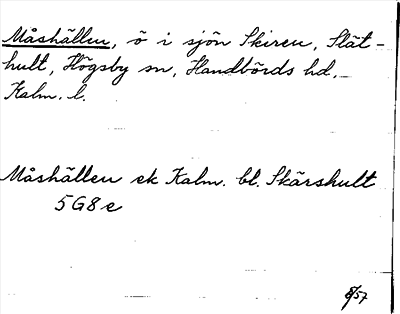 Måshällen, ö i sjön Skiren, Slät-
hult, Högsby sn, Handbörds hd,
Kalm. l.
Måshällen ek Kalm. bl. Skärshult
5G8e
8/57